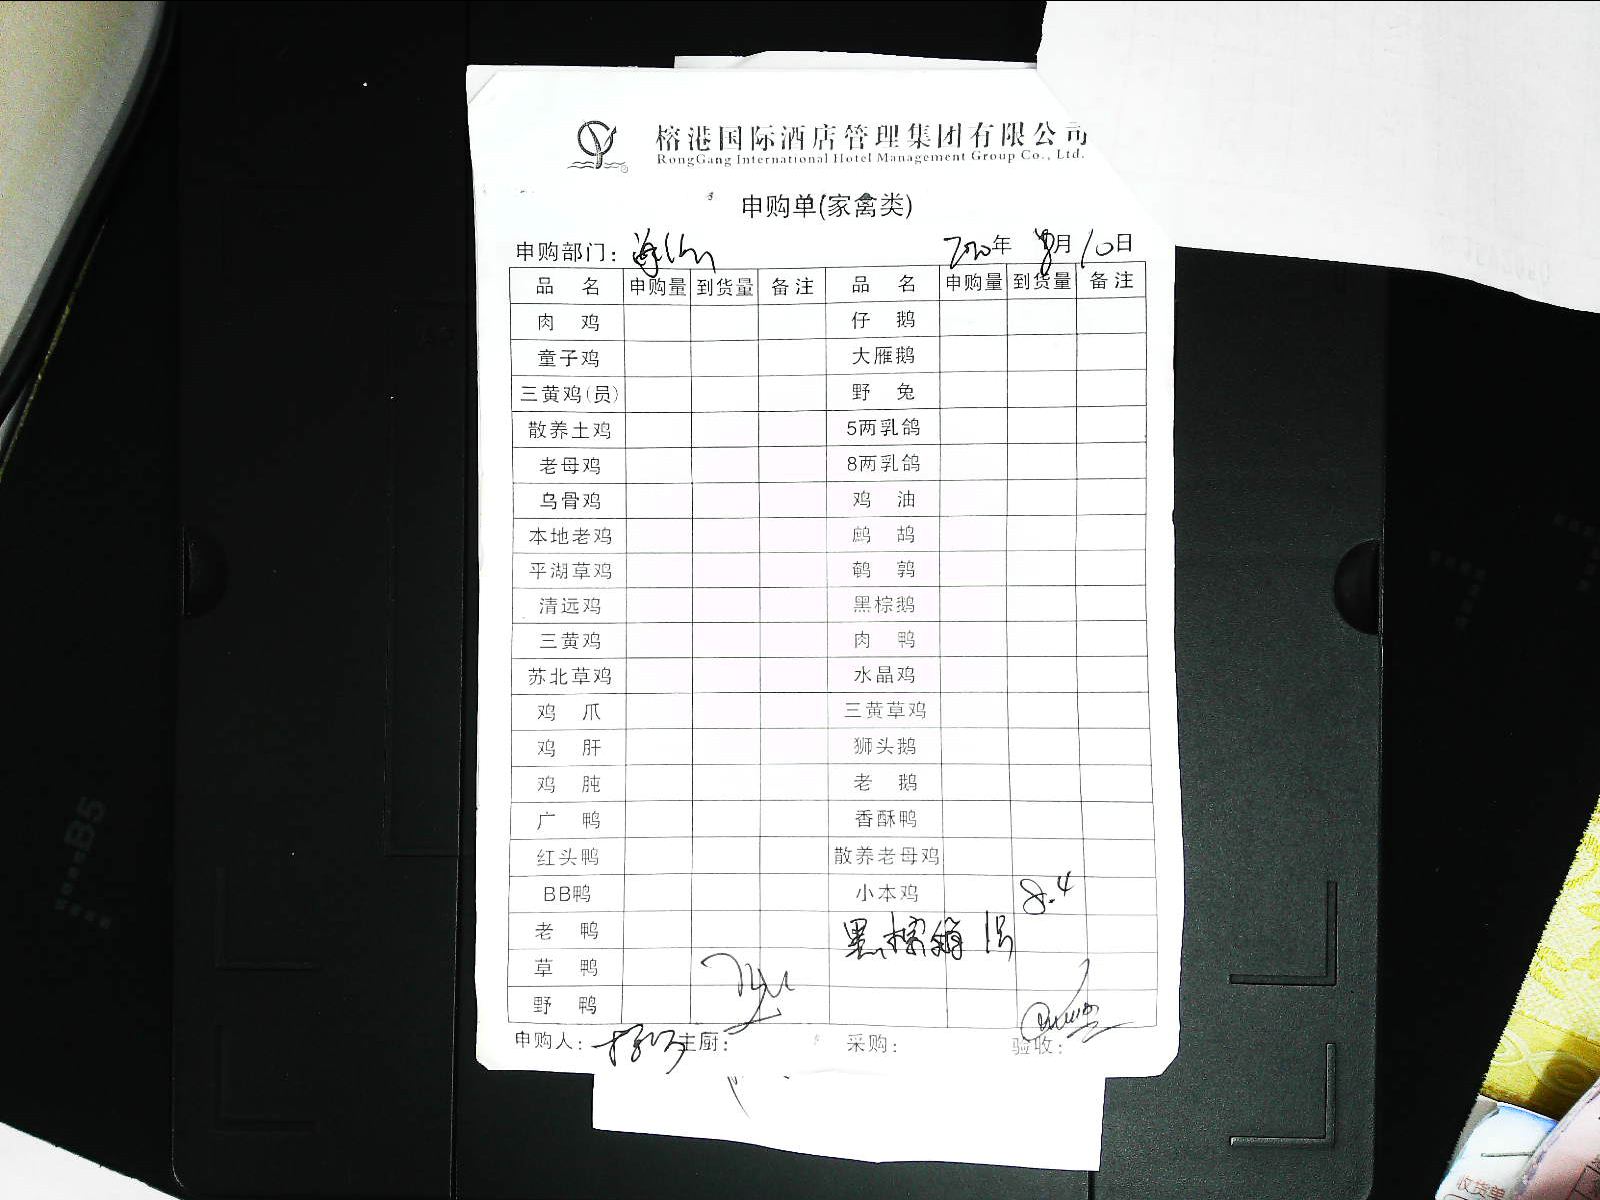 榕港国际酒店管理集团有限公司
RongGang International Hotel Management Group Co., Ltd.
申购单(家禽类)
申购部门: 2020年 8月10日
品 名 申购量 到货量 备注 品 名 申购量 到货量 备注
肉 鸡 仔 鹅
童子鸡 大雁鹅
三黄鸡(员) 野 兔
散养土鸡 5两乳鸽
老母鸡 8两乳鸽
乌骨鸡 鸡 油
本地老鸡 鹧 鸪
平湖草鸡 鹌 鹑
清远鸡 黑棕鹅
三黄鸡 肉 鸭
苏北草鸡 水晶鸡
鸡 爪 三黄草鸡
鸡 肝 狮头鹅
鸡 肫 老 鹅
广 鸭 香酥鸭
红头鸭 散养老母鸡
BB鸭 小本鸡 8.4
老 鸭 黑棕
草 鸭
野 鸭
申购人: 主厨: 采购: 验收:
B5
收货单